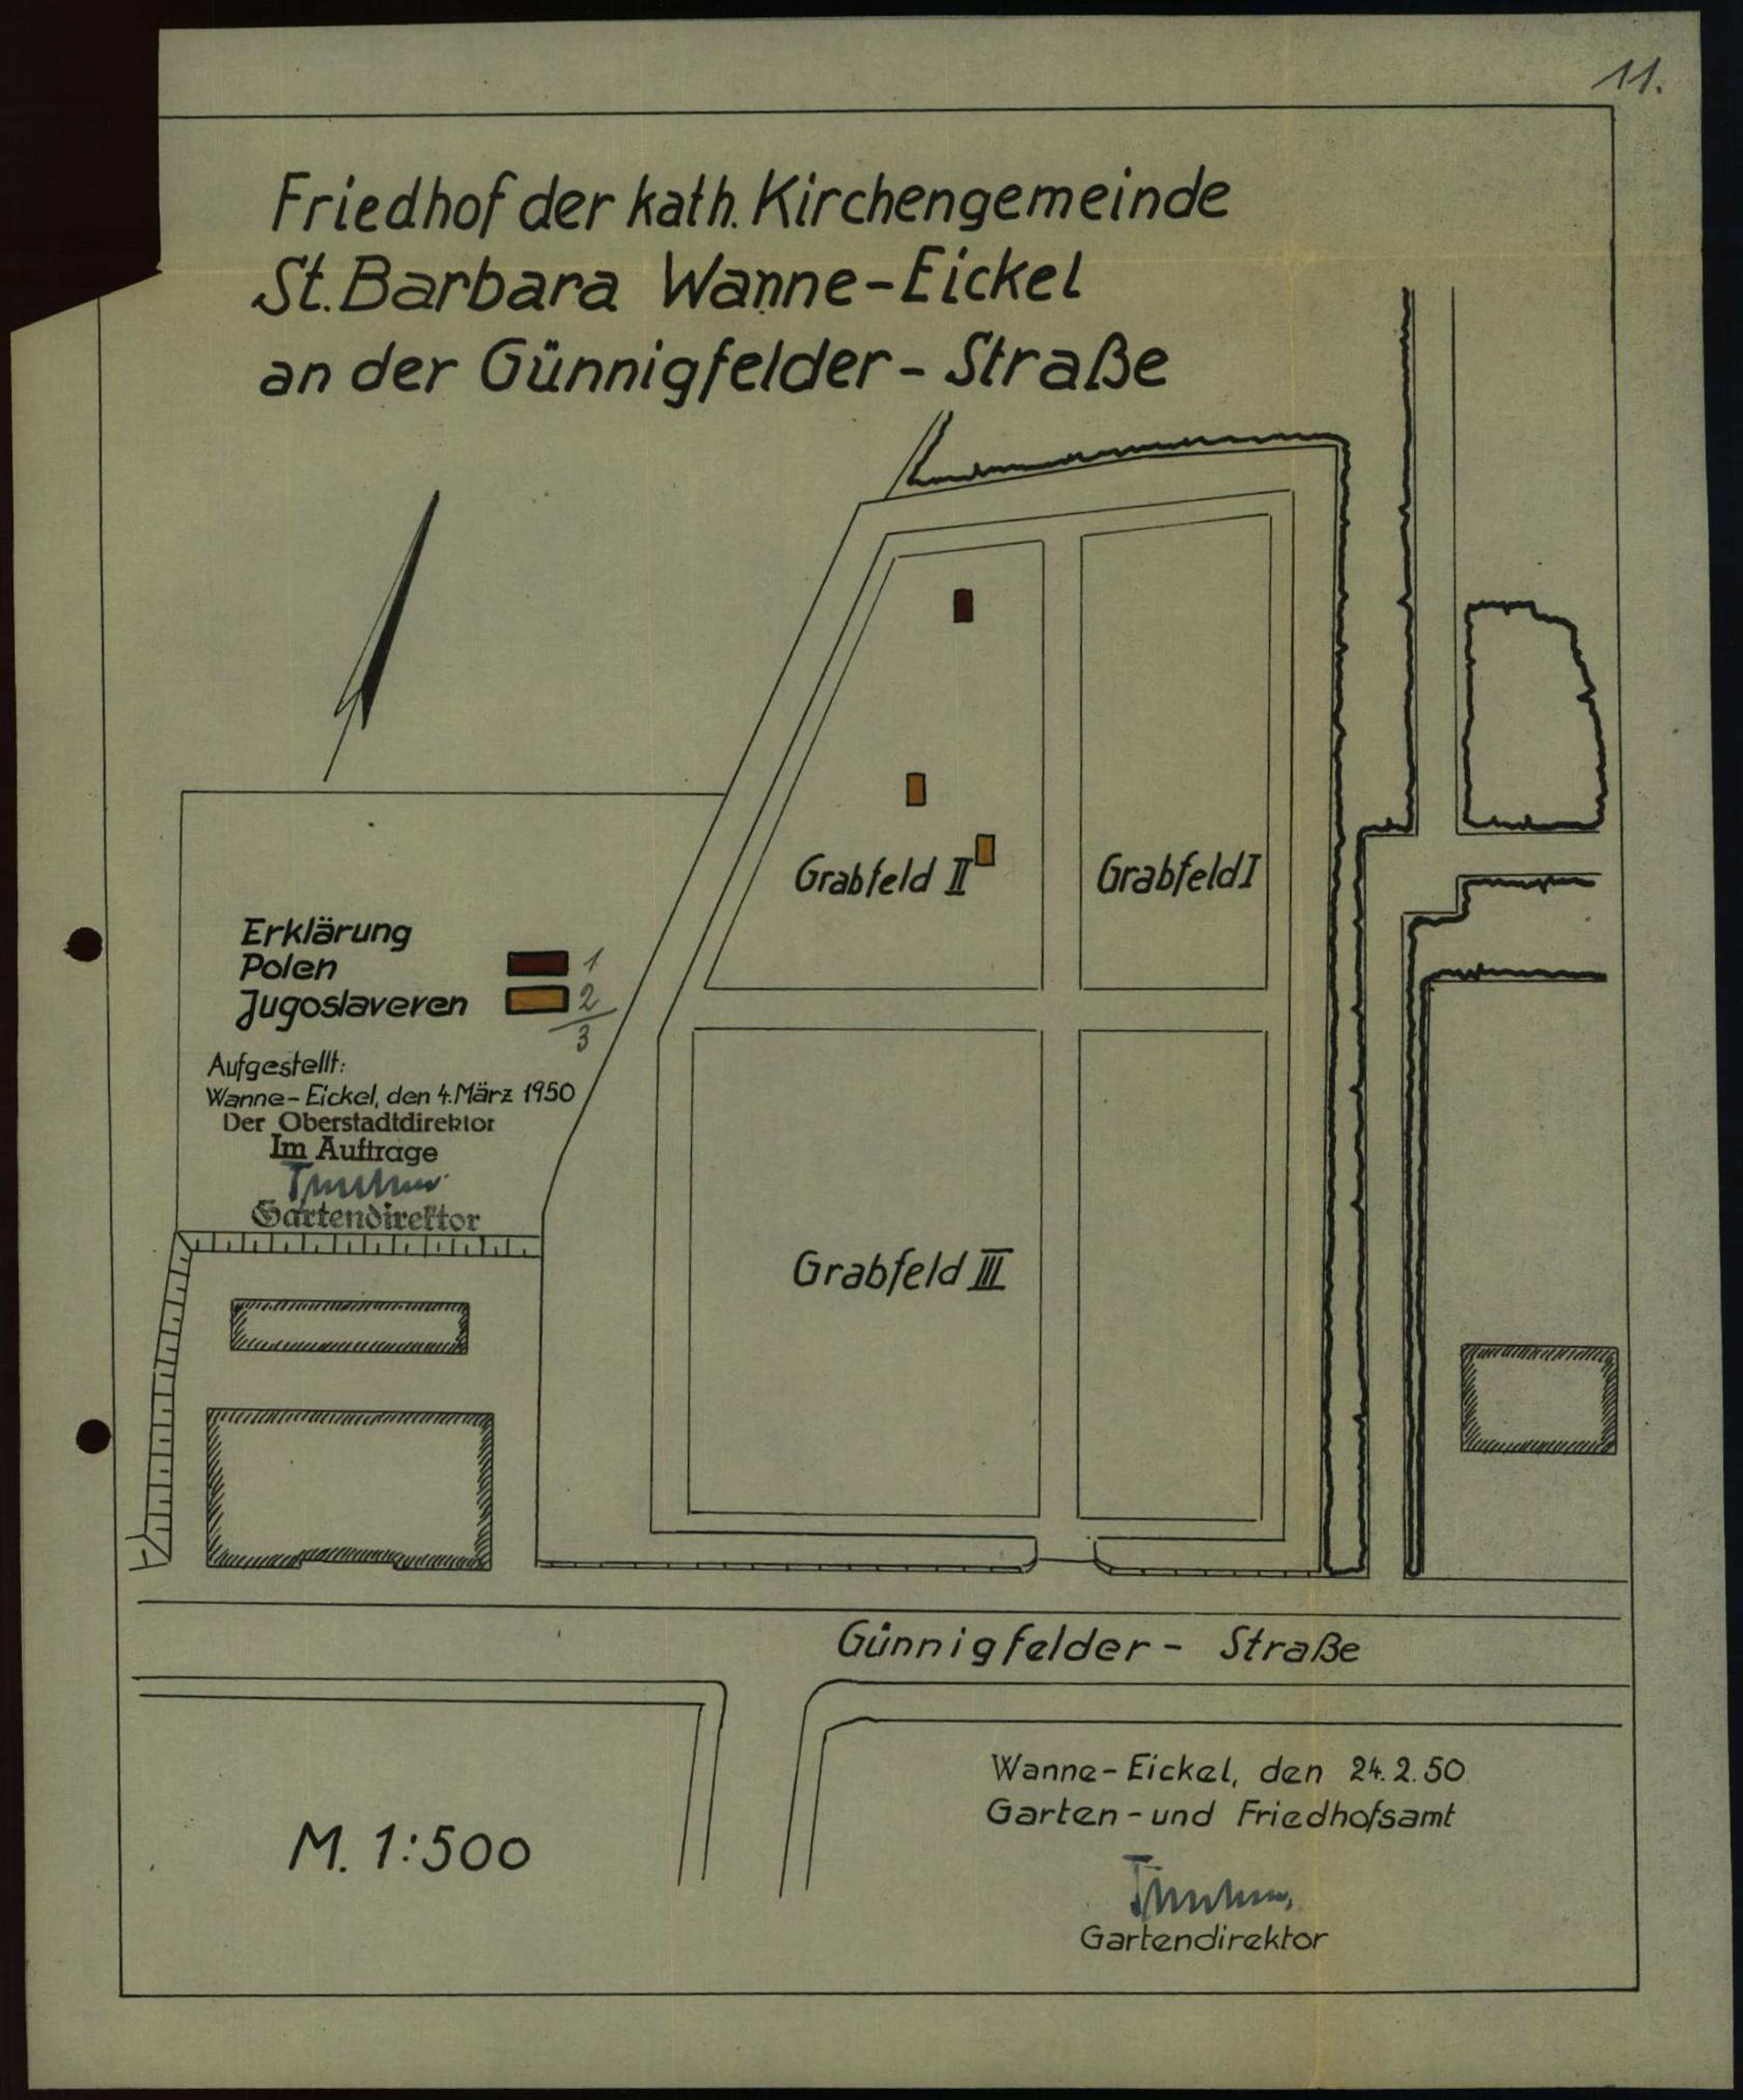 11.
Friedhof der kath. Kirchengemeinde
St. Barbara Wanne-Eickel
an der Günnigfelder-Straße
Grabfeld II
Grabfeld I
Erklärung
Polen 1
Jugoslaveren 2
3
Aufgestellt:
Wanne-Eickel, den 4. März 1950
Der Oberstadtdirektor
Im Auftrage
Gartendirektor
Grabfeld III
Günnigfelder- Straße
M. 1:500
Wanne-Eickel, den 24.2.50
Garten-und Friedhofsamt
Gartendirektor